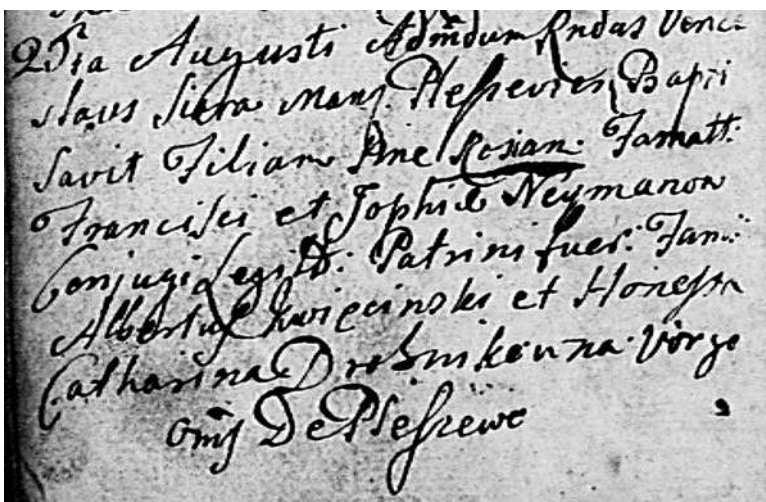 25ta Augusti Admdum Rndus Vence
slaus Siera Mans. Plessevien. Bapti
savit Filiam Nne Rosian. Famatt:
Francisci et Sophia Neymanow
Conjugi Legitt: Patrini fuer: Fam:
Albertus Kwiecinski et Honesta
Catharina Drobnikowna Virgo
Oms De Plessewe